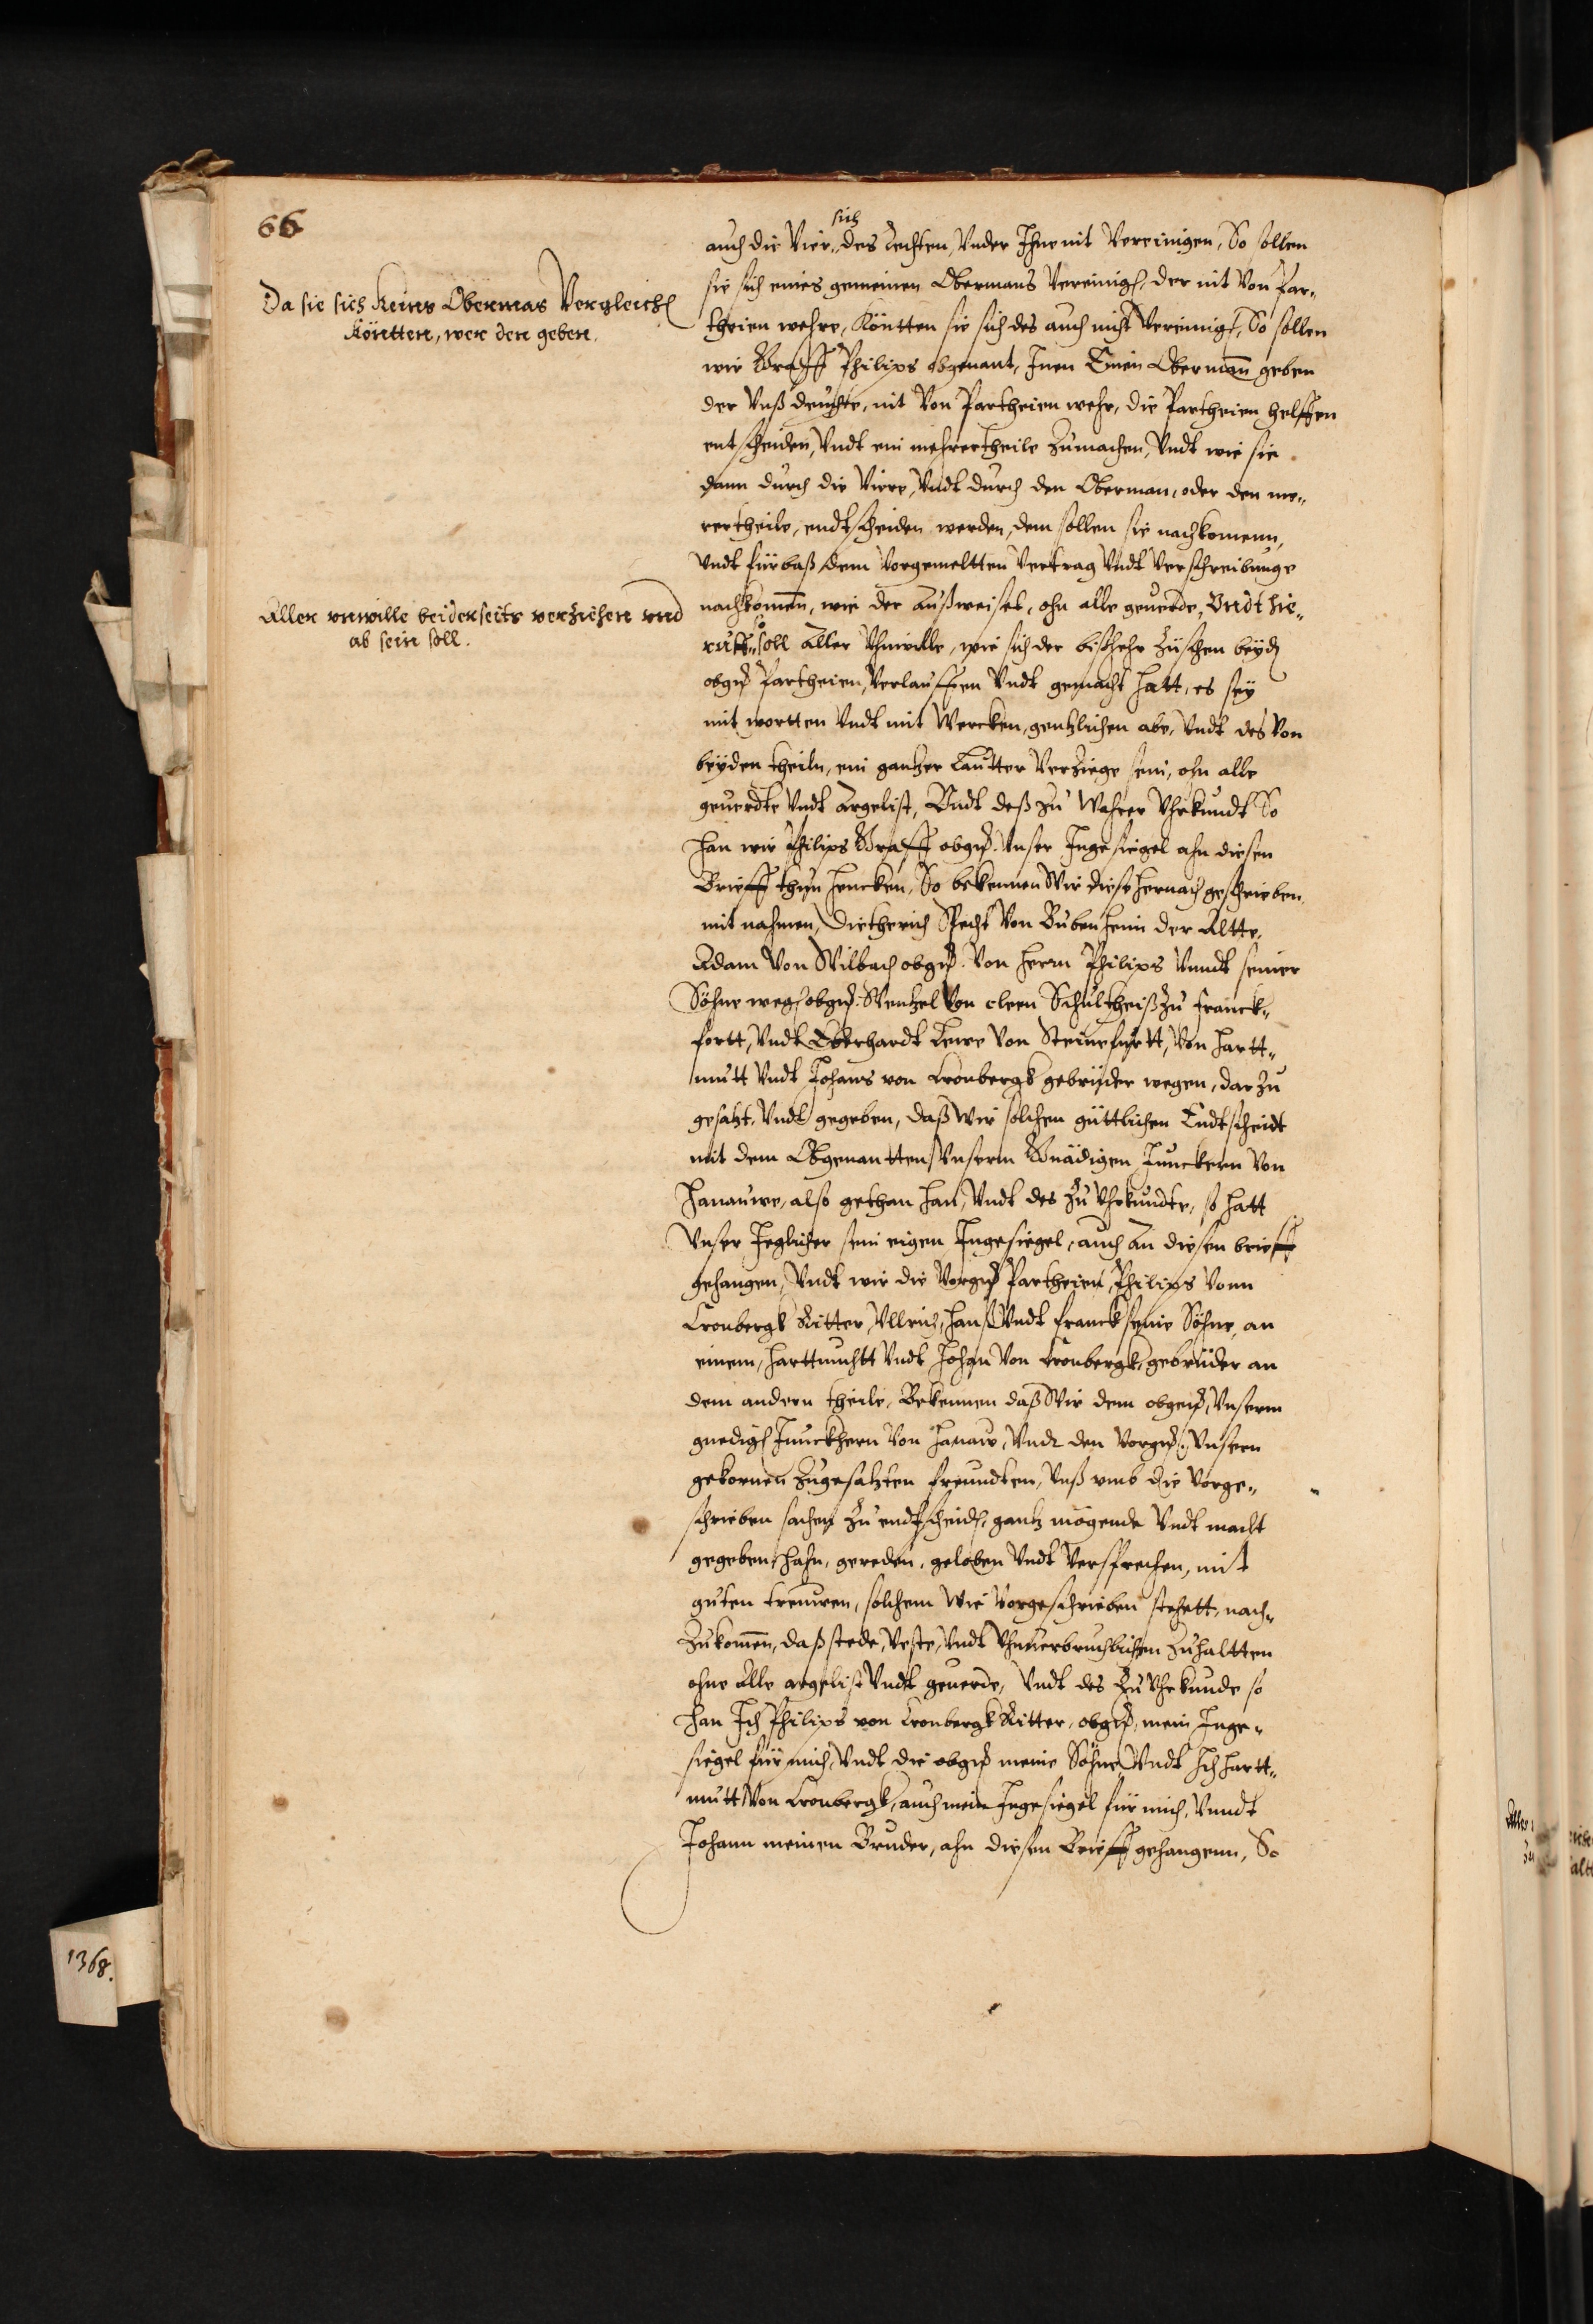 66
sich
auch die Vier„ des Rechten, Vnder Ihne nit Vereinigen, So sollen
sie sich eines gemeinen Obermans Vereinig, der nit Von Par„
theien wehre, Köntten sie sich des auch nicht Vereinig, So sollen
wir Graff Philips obgenant, Inen Einen Oberman geben
der Vnß deuchte, nit Von Partheien wehr, die Partheien helffen
entscheiden, Vndt ein mehrertheile zumachen, Vndt wie sie
dann durch die Viere, Vndt durch den Oberman, oder den me„
rertheile, endtscheiden werden, dem sollen sie nachkomenn,
Vndt fürbaß dem Vorgemeltten Vertrag Vndt Verschreibunge
nachkomen, wie der Außweiset, ohn alle geuerde, Vndt hie„
ruff„ soll Aller Vhnwille, wie sich der bißhehr zuschen beyd
obgß Partheien, Verlauffen Vndt gemacht hatt, es sey
mit wortten Vndt mit Wercken, gentzlichen abe, Vndt des Von
beyden theiln, ein gantzer Lautter Verziege sein, ohn alle
geuerdte Vndt Argelist, Vndt deß zu Wahrer Vhrkundt So
han wir Philips Graff obgß. Vnser Ingesiegel ahn diesen
Brieff thun hencken, So bekennen Wir diese hernach geschrieben
mit nahmen, Dietherich Specht Von Bubenheim der Altte,
Adam Von Vilbach obgß. Von herrn Philips Vnndt seiner
Söhne weg obgß. Wentzel Von cleen Schultheiß zu Franck„
fortt, Vndt Eberhardt Lewe Von Steinefurtt, Von Hartt„
mutt Vndt Johans von Cronbergk gebrüder wegen, dar zu
gesatzt Vndt gegeben, daß wir solchen güttlichen Endtscheidt
mit dem Obgenantten Vnserm Gnädigen Junckern Von
Hanauwe, also gethan han, Vndt des zu Vhrkundte, so hatt
Vnser Jeglicher sein eigen Ingesiegel, auch an diesen brieff
gehangen, Vndt wir die Vorgß Partheien, Philips Vonn
Cronbergk Ritter, Vllrich, Hanß Vndt Franck seine Söhne, an
einem, Harttmuhtt Vndt Johan Von Cronbergk, gebrüder an
dem andern theile, Bekennen daß Wir dem obgenß, Vnserm
gnedig Junckhern Von Hanaw, Vndt den Vorgß. Vnsern
gekornen zugesatzten freundten, Vnß vmb die Vorge„
schrieben sachen zu endtscheid, gantz mögende Vndt macht
gegeben hahn, gereden, geloben Vndt Versprechen, mit
guten treuwen, solchem Wie Vorgeschrieben stehett, nach„
zukomen, daß stede, Veste, Vndt Vhnuerbruchlichen zuhaltten
ohne Alle argelist Vndt geuerde, Vndt des zu Vhrkunde so
han Ich Philips von Cronbergk Ritter, obgß, mein Inge„
siegel für mich, Vndt die obgß meine Söhne, Vndt Ich Hartt„
mutt Von Cronbergk, auch mein Ingesiegel für mich, Vnndt
Johann meinen Bruder, ahn diesen Brieff gehangenn, So
Da sie sich keines Obermas Vergleich
köntten, wer den geben.
Aller vnwille beiderseits verziehen vnd
ab sein soll.
1368.